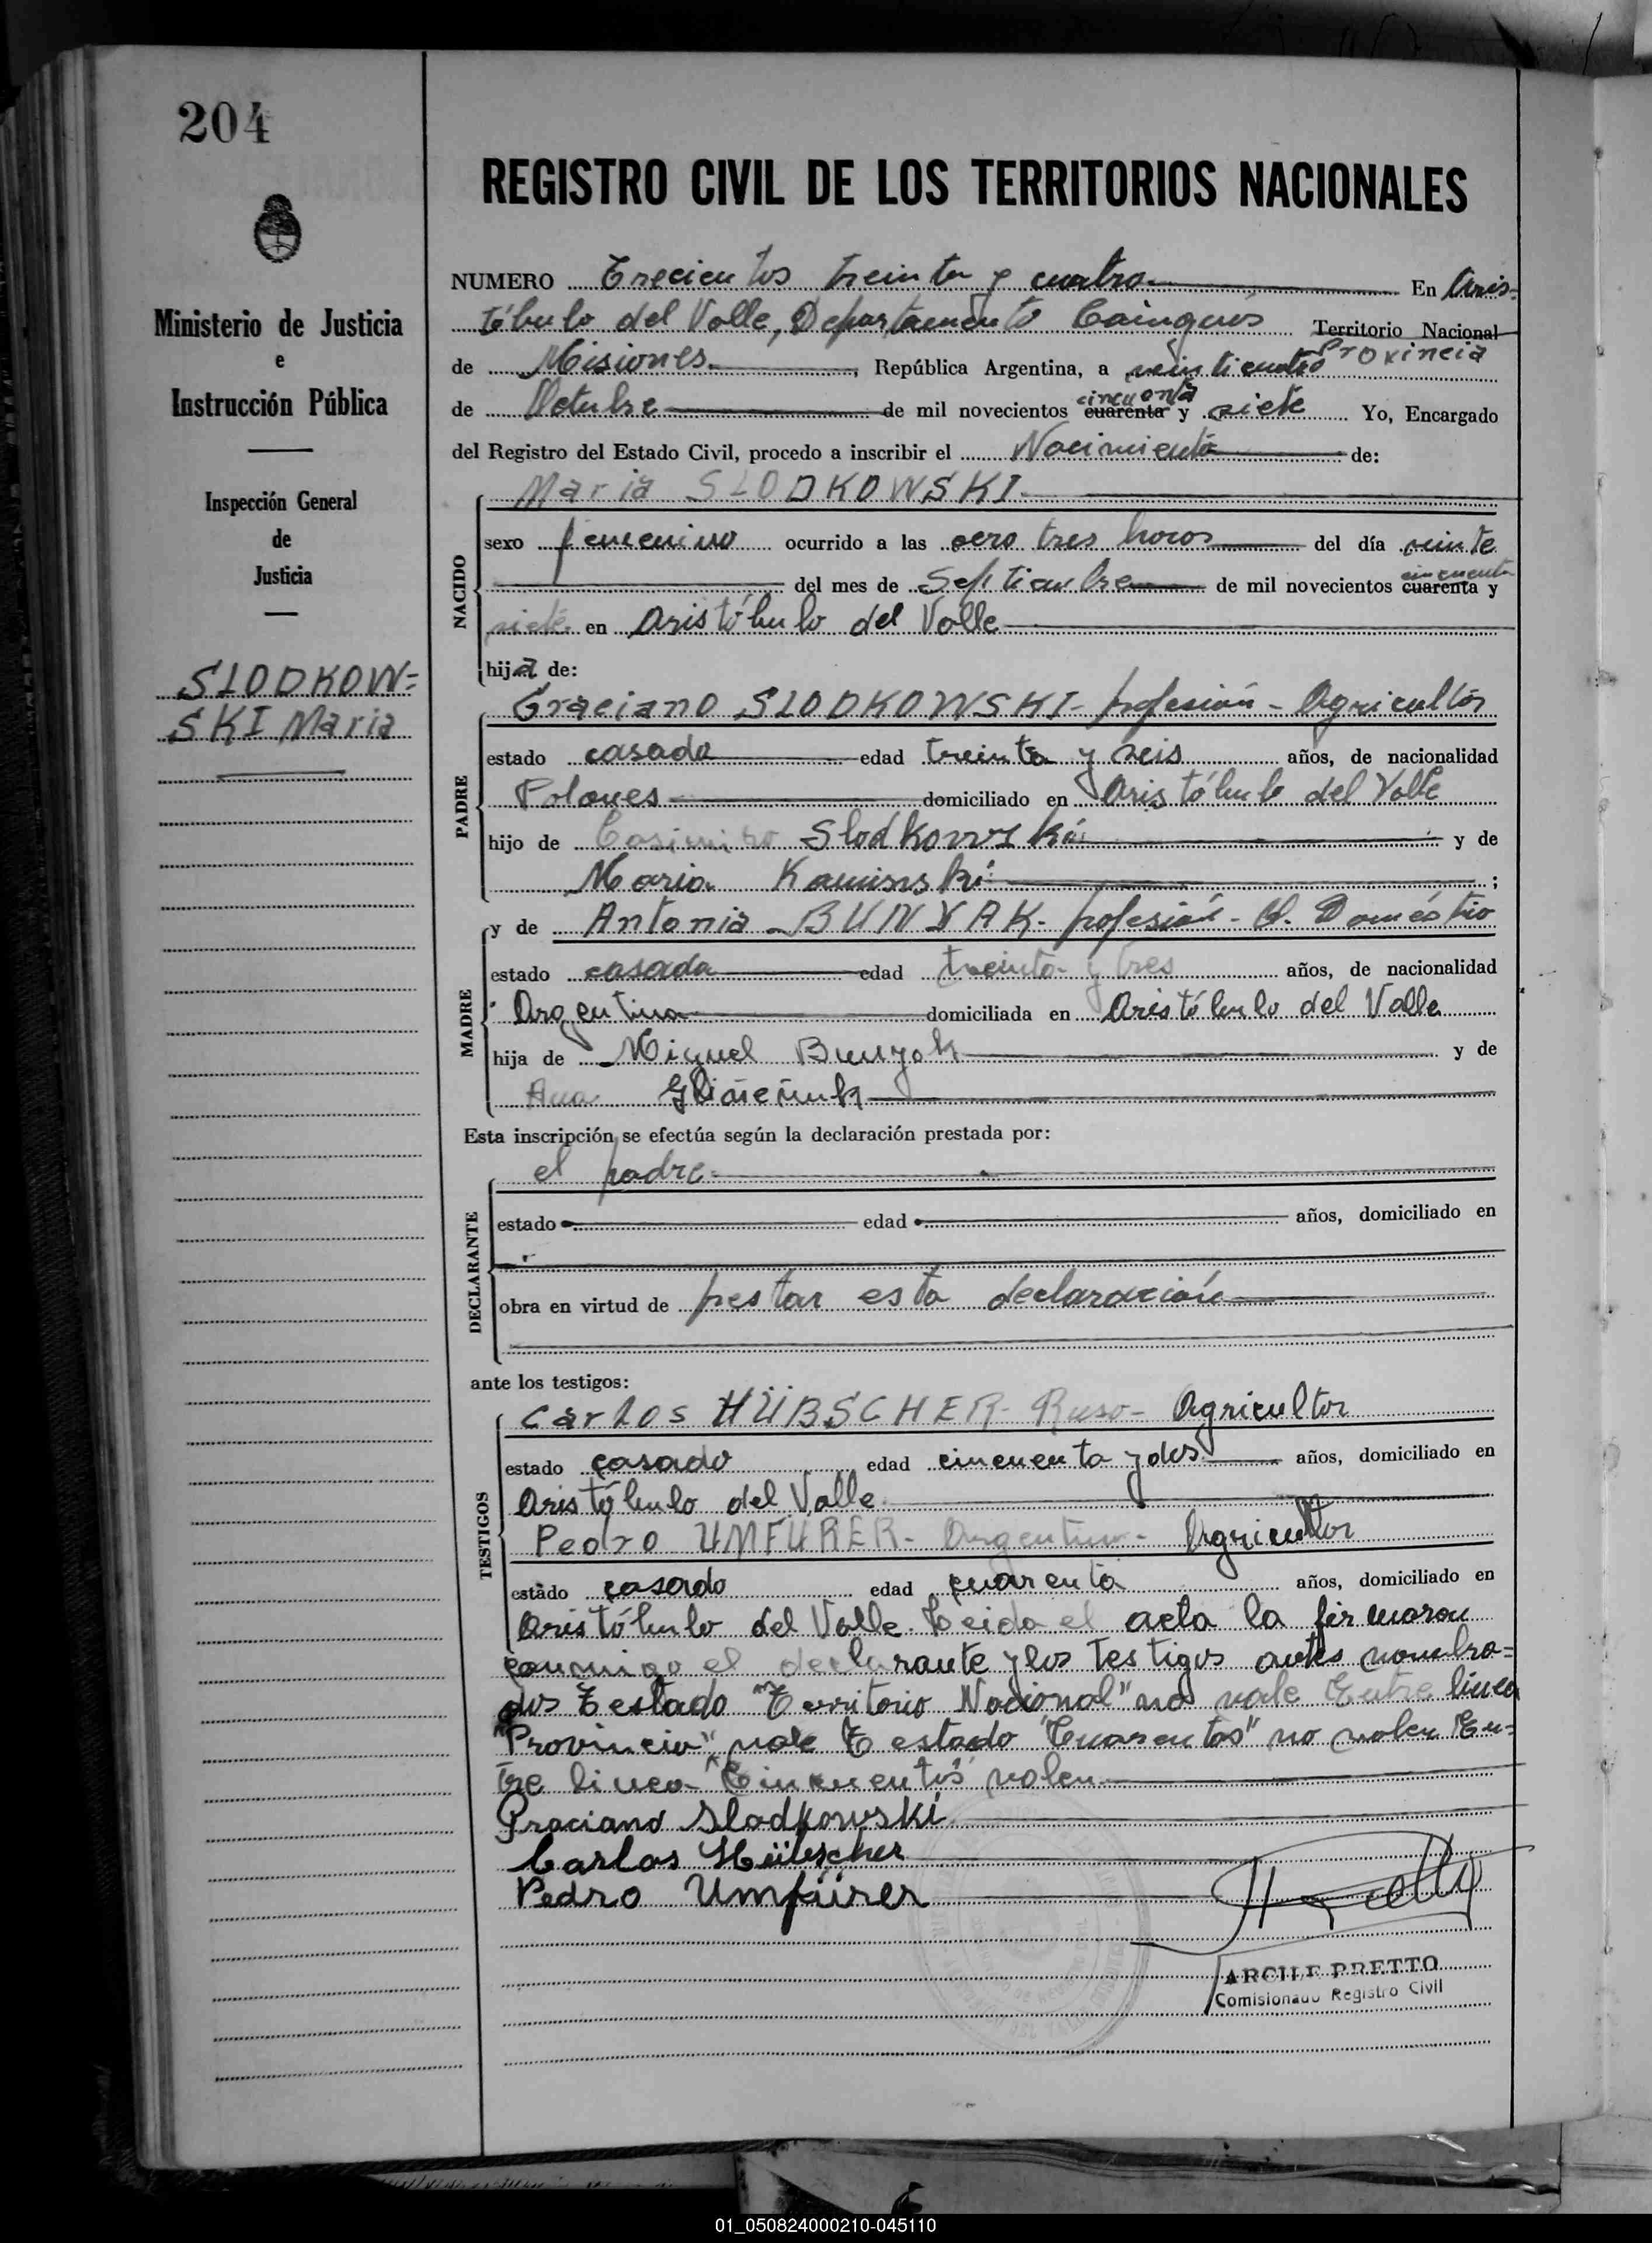 204
Ministerio de Justicia
e
Instrucción Pública
Inspección General
de
Justicia
SLODKOW=
SKI Maria
REGISTRO CIVIL DE LOS TERRITORIOS NACIONALES
NUMERO Trecientos treinta y cuatro En Aris=
tóbulo del Valle, Departamento Cainguás Territorio Nacional
Provincia
de Misiones, República Argentina, a veinticuatro
cincuenta
de Octubre de mil novecientos cuarenta y siete Yo, Encargado
del Registro del Estado Civil, procedo a inscribir el Nacimiento de:
Maria SLODKOWSKI
NACIDO
sexo femenino ocurrido a las cero tres horas del día veinte
cincuenta
del mes de Septiembre de mil novecientos cuarenta y
siete en Aristóbulo del Valle
hija de:
PADRE
Graciano SLODKOWSKI- profesión - Agricultor
estado casado edad treinta y seis años, de nacionalidad
Polones domiciliado en Aristóbulo del Valle
hijo de Casimiro Slodkowski y de
Maria Kaminski ;
MADRE
y de Antonia BUNYAK- profesión - Q. Doméstico
estado casada edad treinta y tres años, de nacionalidad
Argentina domiciliada en Aristóbulo del Valle
hija de Miguel Bunyak y de
Ana
Esta inscripción se efectúa según la declaración prestada por:
DECLARANTE
el padre
estado edad años, domiciliado en
obra en virtud de prestar esta declaración
ante los testigos:
TESTIGOS
Carlos HÜBSCHER- Ruso- Agricultor
estado casado edad cincuenta y dos años, domiciliado en
Aristóbulo del Valle
Pedro UMFÜRER- Argentino- Agricultor
estado casado edad cuarenta años, domiciliado en
Aristóbulo del Valle. Leida el acta la firmaron
conmigo el declarante y los testigos antes nombra=
dos Testado "Territorio Nacional" no vale Entre linea
"Provincia" vale Testado "Cuarentas" no valen En=
tre linea "Cincuentas" valen
Graciano Slodkowski
Carlos Hübscher
Pedro Umfürer
ARCILE PRETTO
Comisionado Registro Civil
01_050824000210-045110